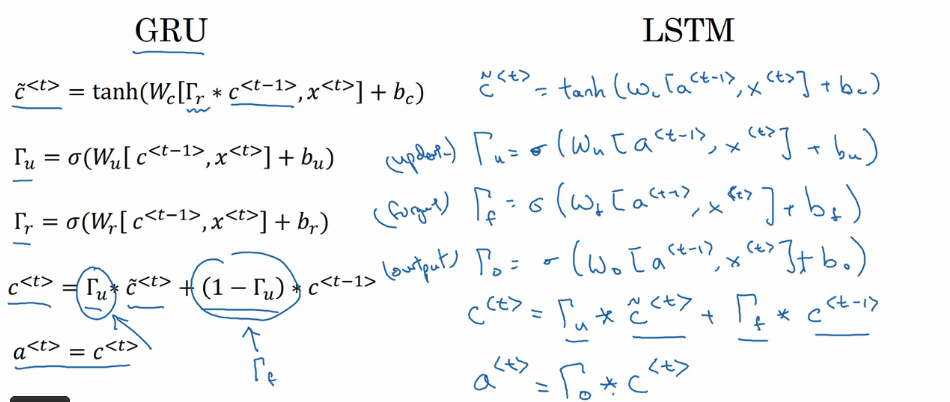 GRU
c̃^{<t>} = tanh(W_c[Γ_r * c^{<t-1>}, x^{<t>}] + b_c)
Γ_u = σ(W_u[ c^{<t-1>}, x^{<t>}] + b_u)
Γ_r = σ(W_r[ c^{<t-1>}, x^{<t>}] + b_r)
c^{<t>} = Γ_u * c̃^{<t>} + (1 − Γ_u) * c^{<t-1>}
a^{<t>} = c^{<t>}
Γ_f
LSTM
c̃^{<t>} = tanh(W_c[a^{<t-1>}, x^{<t>}] + b_c)
(update) Γ_u = σ(W_u[a^{<t-1>}, x^{<t>}] + b_u)
(forget) Γ_f = σ(W_f[a^{<t-1>}, x^{<t>}] + b_f)
(output) Γ_o = σ(W_o[a^{<t-1>}, x^{<t>}] + b_o)
c^{<t>} = Γ_u * c̃^{<t>} + Γ_f * c^{<t-1>}
a^{<t>} = Γ_o * c^{<t>}